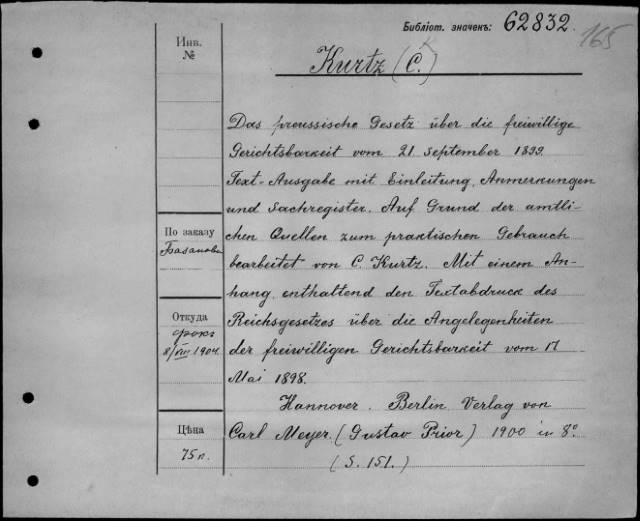 Библіот. значекъ: 62832.
165
Инв.
№
Kurtz (C.)
Das preussische Gesetz über die freiwillige
Gerichtsbarkeit vom 21. September 1899.
Text-Ausgabe mit Einleitung, Anmerkungen
und Sachregister. Auf Grund der amtli-
chen Quellen zum praktischen Gebrauch
bearbeitet von C. Kurtz. Mit einem An-
hang, enthaltend den Textabdruck des
Reichsgesetzes über die Angelegenheiten
der freiwilligen Gerichtsbarkeit vom 17
Mai 1898.
Hannover. Berlin. Verlag von
Carl Meyer. (Gustav Prior) 1900 in 8º
(S. 151.)
По заказу
Откуда
8/VIII 1904.
Цѣна
75 к.